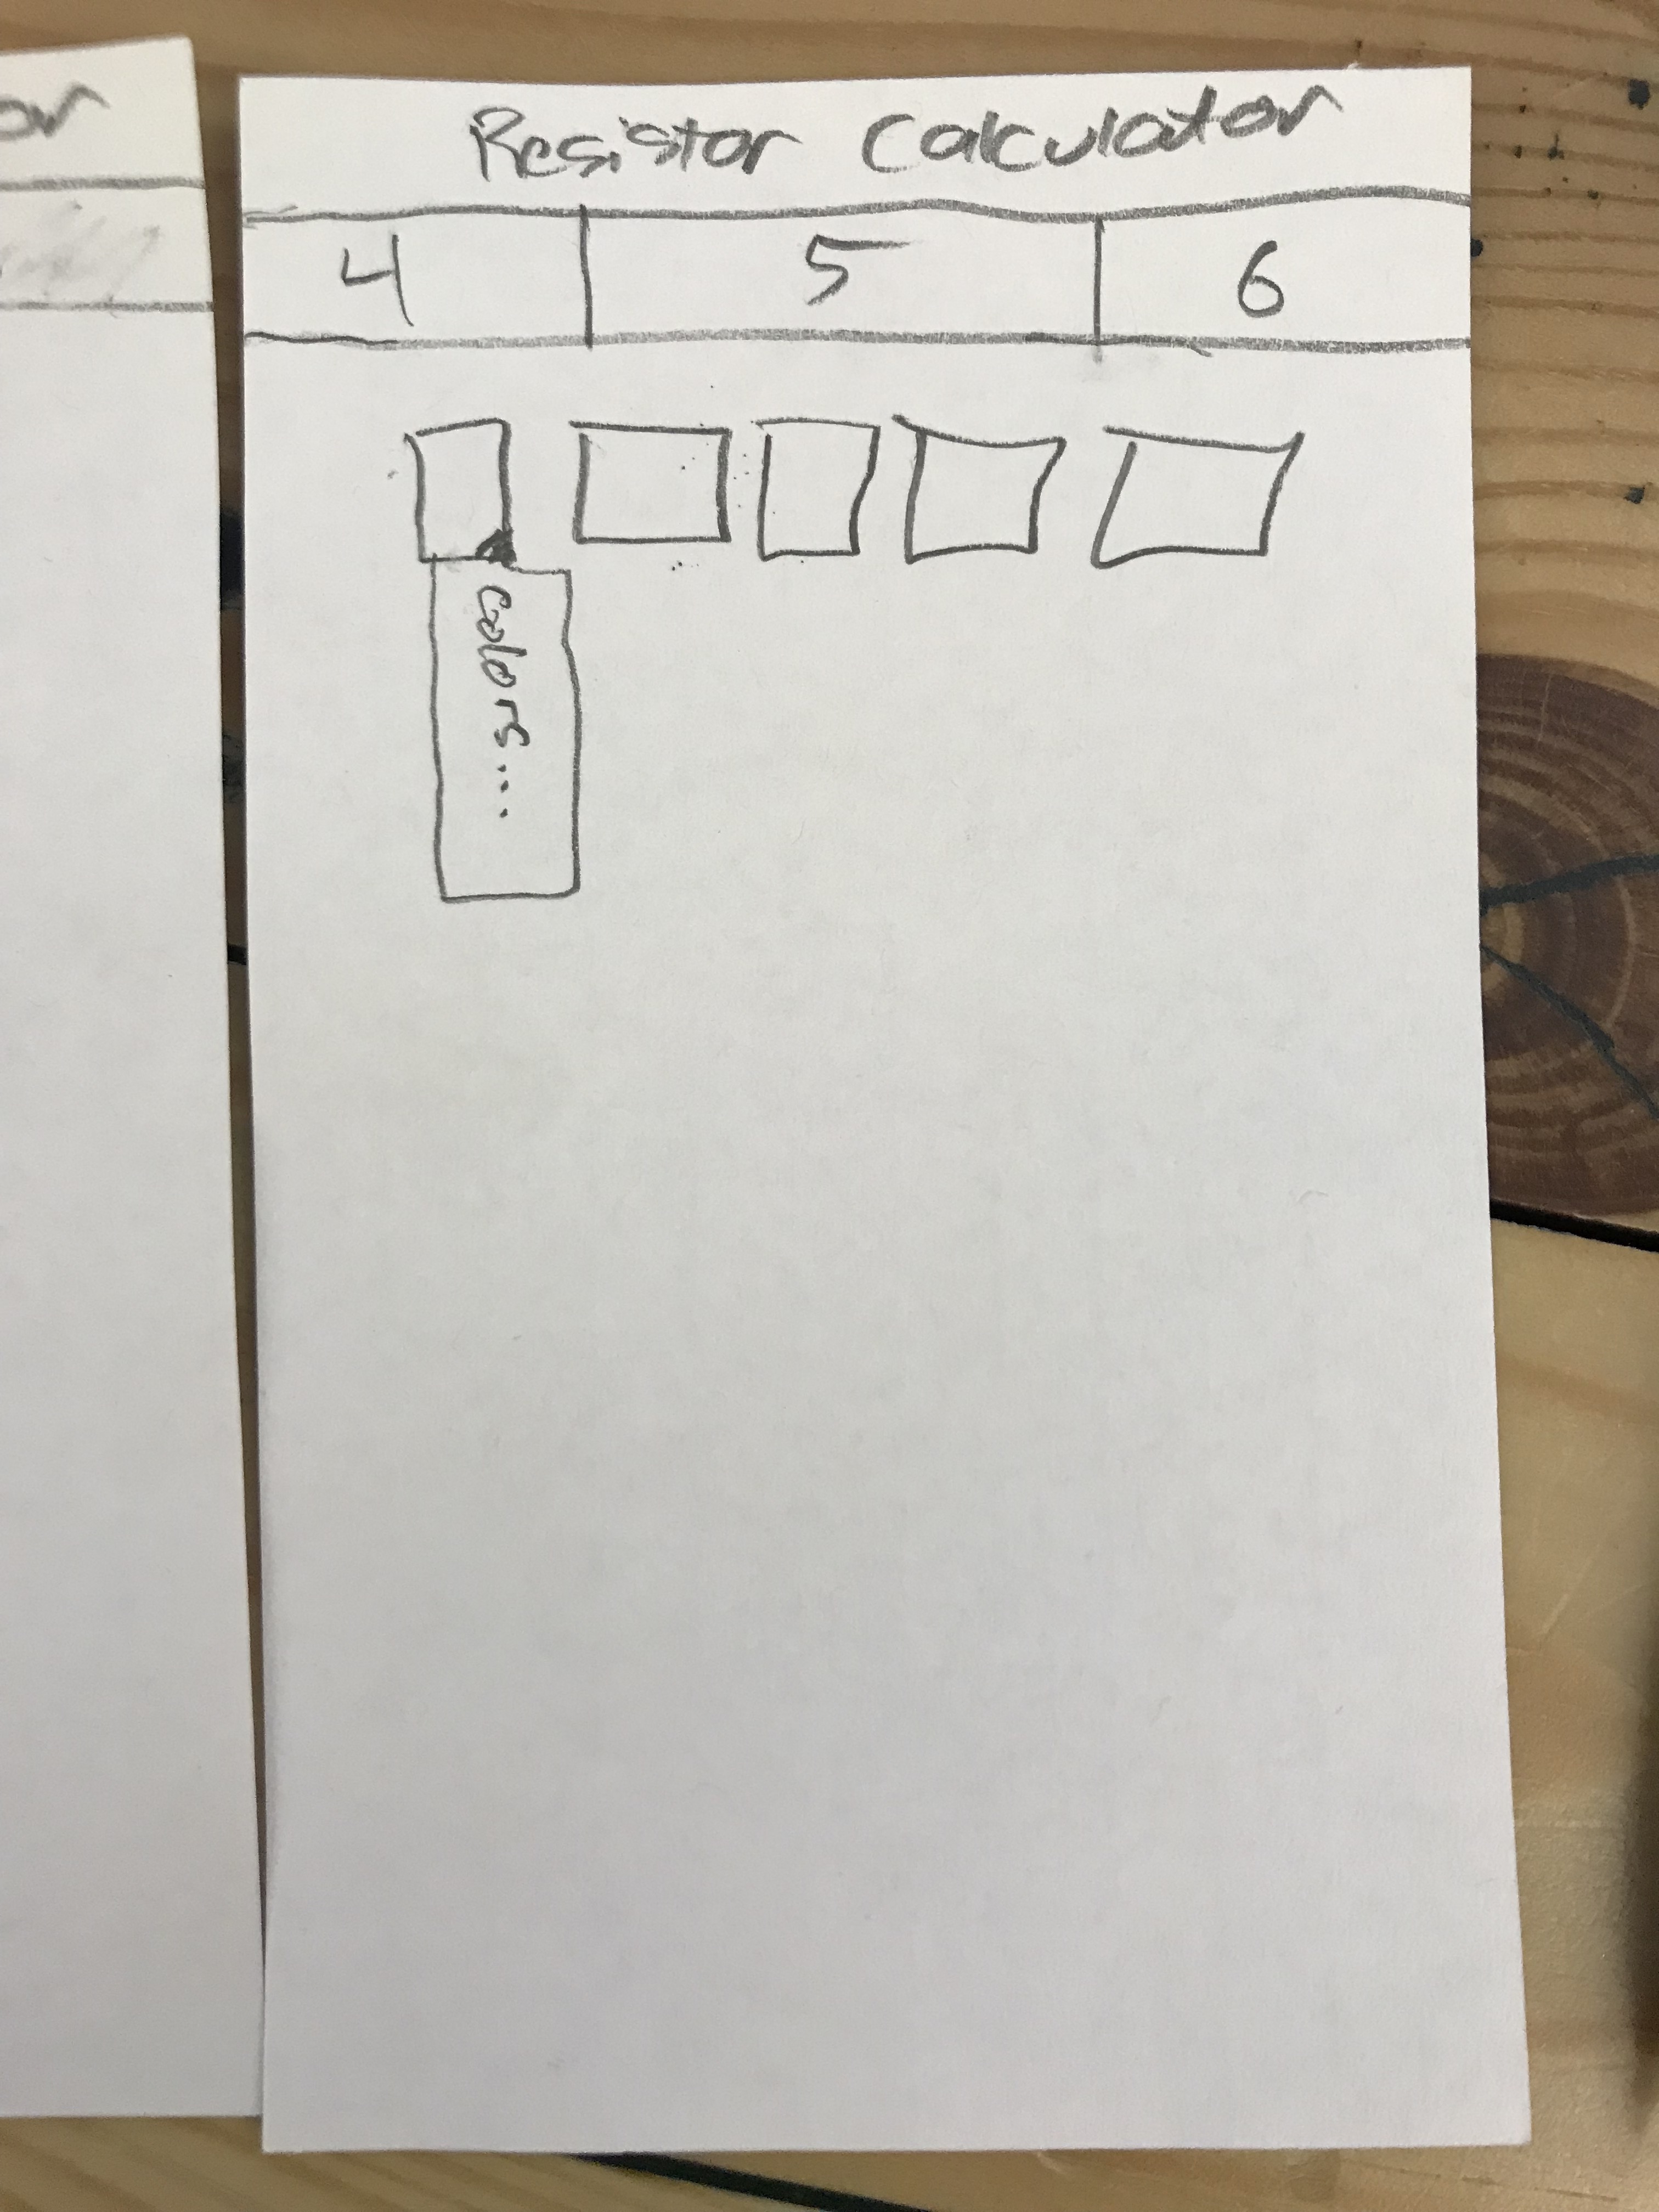 or
Resistor Calculator
4 5 6
colors...